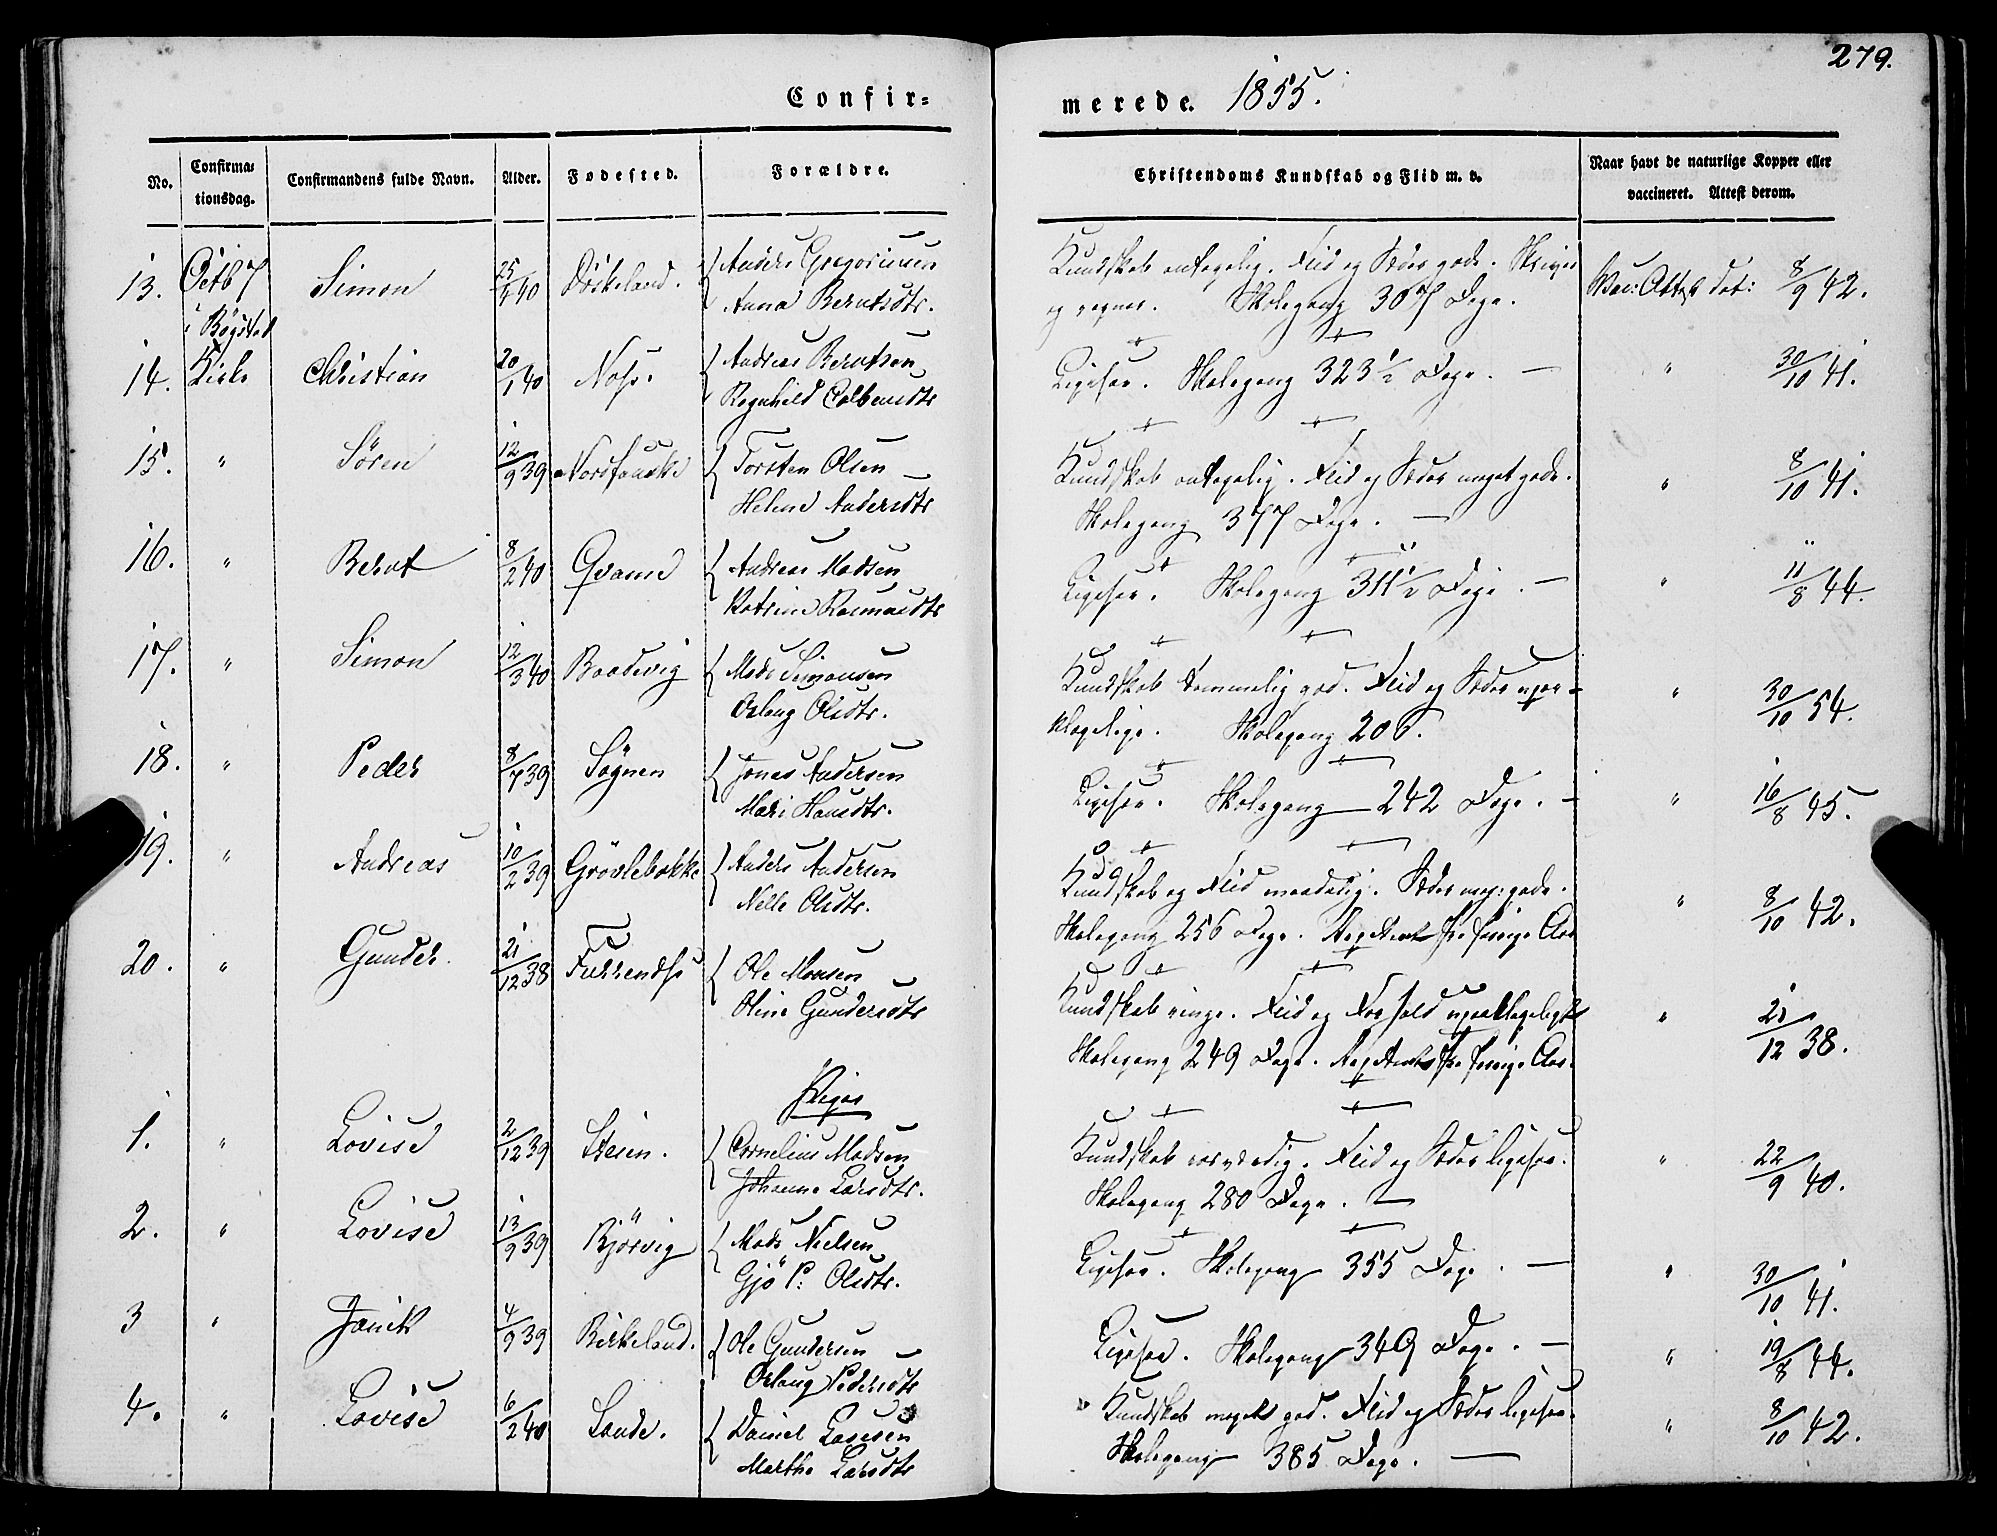 279.
Confir=
merede. 1855.
No.
Confirma=
tionsdag.
Confirmandens fulde Navn.
Alder.
Fødested.
Forældre.
Christendoms Kundskab og Flid m. v.
Naar havt de naturlige Kopper eller
vaccineret. Attest derom.
13. Octb 7 Simon 25/4 40 Döskeland. Anders Gregoriusen
Anna Berntsdtr.
Kundskab antagelig. Flid og Sæder gode. Skriver
og regner. Skolegang 307 Dage.
Vac: Attest dat: 8/9 42.
i Bögstad
14. Kirke Christian 20/1 40 Andreas Berntsen
Regnhild Colbensdtr
Ligesaa. Skolegang 323 1/2 Dage. —
" 30/10 41.
15. " Sören 12/9 39 Torsten Olsen
Helene Andersdtr
Kundskab antagelig. Flid og Sæder meget gode.
Skolegang 377 Dage. —
" 8/10 41.
16. " Bernt 8/2 40 Qvame Andreas Madsen
Katrine Rasmusdtr
Ligesaa. Skolegang 311 1/2 Dage. —
" 11/8 44.
17. " Simon 12/3 40 Mads Simonsen
Oslaug Olsdtr.
Kundskab temmelig god. Flid og Sæder upaa-
klagelige. Skolegang 206.
" 30/10 54.
18. " Peder 8/7 39 Sögnen Jonas Andersen
Mari Hansdtr.
Ligesaa. Skolegang 242 Dage. —
" 16/8 45.
19. " Andreas 10/2 39 Grövlebakke Anders Andersen
Nelle Olsdtr.
Kundskab og Flid maadelig. Sæder meg: gode.
Skolegang 256 Dage. fra forrige Aar
" 8/10 42.
20. " Gunder 21/12 38 Ole Monsen
Oline Gundersdtr
Kundskab ringe. Flid og Forhold upaaklageligt
Skolegang 249 Dage. fra forrige Aar.
" 21/12 38.
Piger
1. " Lovise 2/12 39 Steien. Cornelius Madsen
Johanne Larsdtr.
Kundskab Flid og Sæder ligesaa.
Skolegang 280 Dage. —
" 22/9 40.
2. " Lovise 13/9 39 Bjørvig Mads Nielsen
Gjö P: Olsdtr.
Ligesaa. Skolegang 355 Dage. —
" 30/10 41.
3 " Janik 4/9 39 Birkeland. Ole Gundersen
Oslaug Pedersdtr
Ligesaa. Skolegang 349 Dage. —
" 19/8 44.
4. " Lovise 6/2 40 Sande. Daniel Larsen
Marthe Larsdtr
Kundskab meget god. Flid og Sæder ligesaa.
Skolegang 385 Dage. —
" 8/10 42.